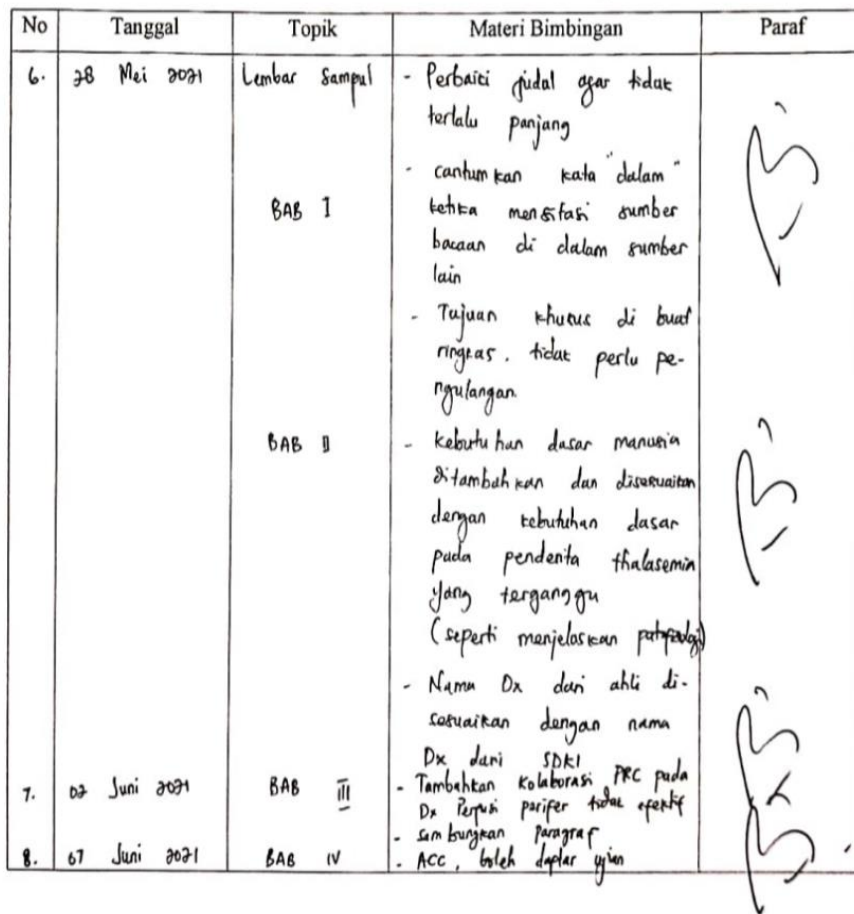 No Tanggal Topik Materi Bimbingan Paraf
6. 28 Mei 2021 Lembar Sampul - Perbaiki judul agar tidak
terlalu panjang
- cantumkan kata "dalam"
BAB I ketika mensitasi sumber
bacaan di dalam sumber
lain
- Tujuan khusus di buat
ringkas. tidak perlu pe-
ngulangan.
BAB II - kebutuhan dasar manusia
ditambahkan dan disesuaikan
dengan kebutuhan dasar
pada penderita thalasemia
yang terganggu
(seperti menjelaskan patofisologi)
- Nama Dx dari ahli di-
sesuaikan dengan nama
Dx dari SDKI
7. 02 Juni 2021 BAB III - Tambahkan Kolaborasi PRC pada
Dx Perfusi perifer tidak efektif
- Sambungkan Paragraf
8. 07 Juni 2021 BAB IV - ACC, boleh daftar ujian